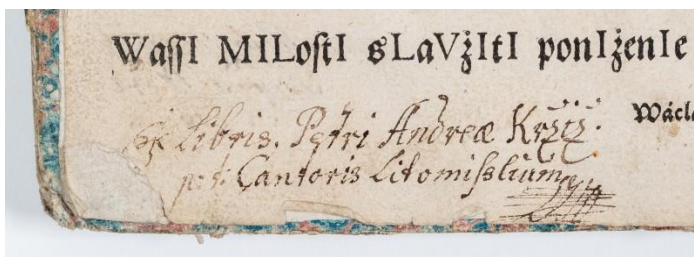 WaſſI MILoſtI sLaVżItI ponIżenIe
Wácla
Ex Libris. Petri Andreæ
p: t: Cantoris Litomiſslium